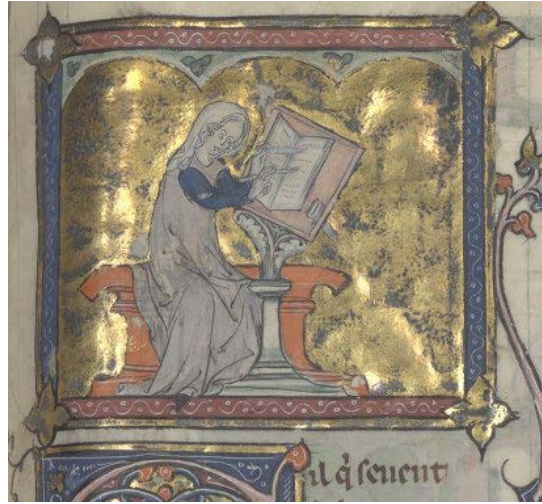 il q̃ seuent